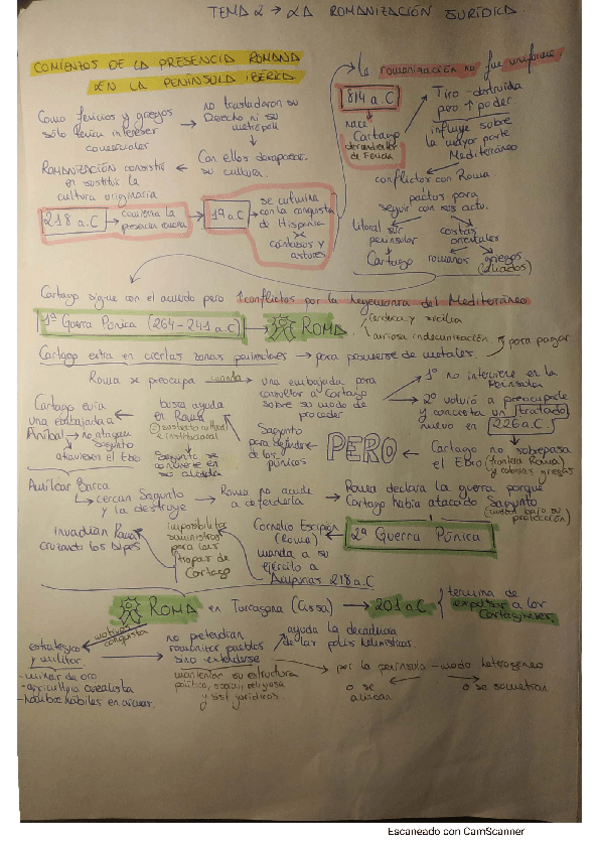 TEMA 2 → LA ROMANIZACIÓN JURÍDICA.
COMIENZOS DE LA PRESENCIA ROMANA
EN LA PENÍNSULA IBÉRICA
Como fenicios y griegos
sólo tenían intereses
comerciales
no trasladaron su
Derecho ni su
metrópoli
Con ellos desaparec.
su cultura.
ROMANIZACIÓN consistió
en sustituir la
cultura originaria
218 a.C
comienza la
presencia romana
19 a.C
se culmina
con la conquista
de Hispania
cántabros y
astures
La romanización no fue uniforme
814 a.C
nace
Cartago
de Fenicia
Tiro - destruida
pero ↑ poder
influye sobre
la mayor parte
Mediterráneo
conflictos con Roma
pactos para
seguir con sus
litoral sur
peninsular
Cartago
costas
orientales
romanos
griegos
(aliados)
Cartago sigue con el acuerdo pero conflictos por la hegemonía del Mediterráneo
1ª Guerra Púnica (264-241 a.C)
ROMA
Cerdeña y Sicilia
indemnización
para pagar
Cartago entra en ciertas zonas peninsulares → para proveerse de metales.
Roma se preocupa
manda
una embajada para
consultar a Cartago
sobre su modo de
proceder
1º no interviene en la
Península
2º volvió a preocuparle
y concierta un tratado
nuevo en 226 a.C
Cartago envía
una embajada a
Aníbal → no ataquen
Sagunto
atraviesen el Ebro
busca ayuda
en Roma
Sagunto se
convierte en
su aliada
Sagunto
para defenderse
de los
púnicos
PERO
Cartago no sobrepasa
el Ebro (frontera Roma)
y colonias griegas
Amílcar Barca
cercan Sagunto
y la destruye
Roma no acude
a defenderla
Roma declara la guerra porque
Cartago había atacado Sagunto
(ciudad bajo su
protección)
2ª Guerra Púnica
invadirían Roma
cruzando los Alpes
imposibilita
suministros
para las
tropas de
Cartago
Cornelio Escipión
(Roma)
manda a su
ejército a
Ampurias 218 a.C
ROMA en Tarragona (Cissa)
201 a.C
termina de
expulsar a los
Cartagineses.
motivos
conquista
estratégico
y militar
- minas de oro
- agricultura cerealista
- hombres hábiles en armar.
no pretendían
romanizar pueblos
sino extenderse
mantenían su estructura
política, social, religiosa
y sist. jurídicos.
ayuda la decadencia
de las polis helenísticas.
por la península - modo heterogéneo
o se
aliaban
o se sometían
Escaneado con CamScanner